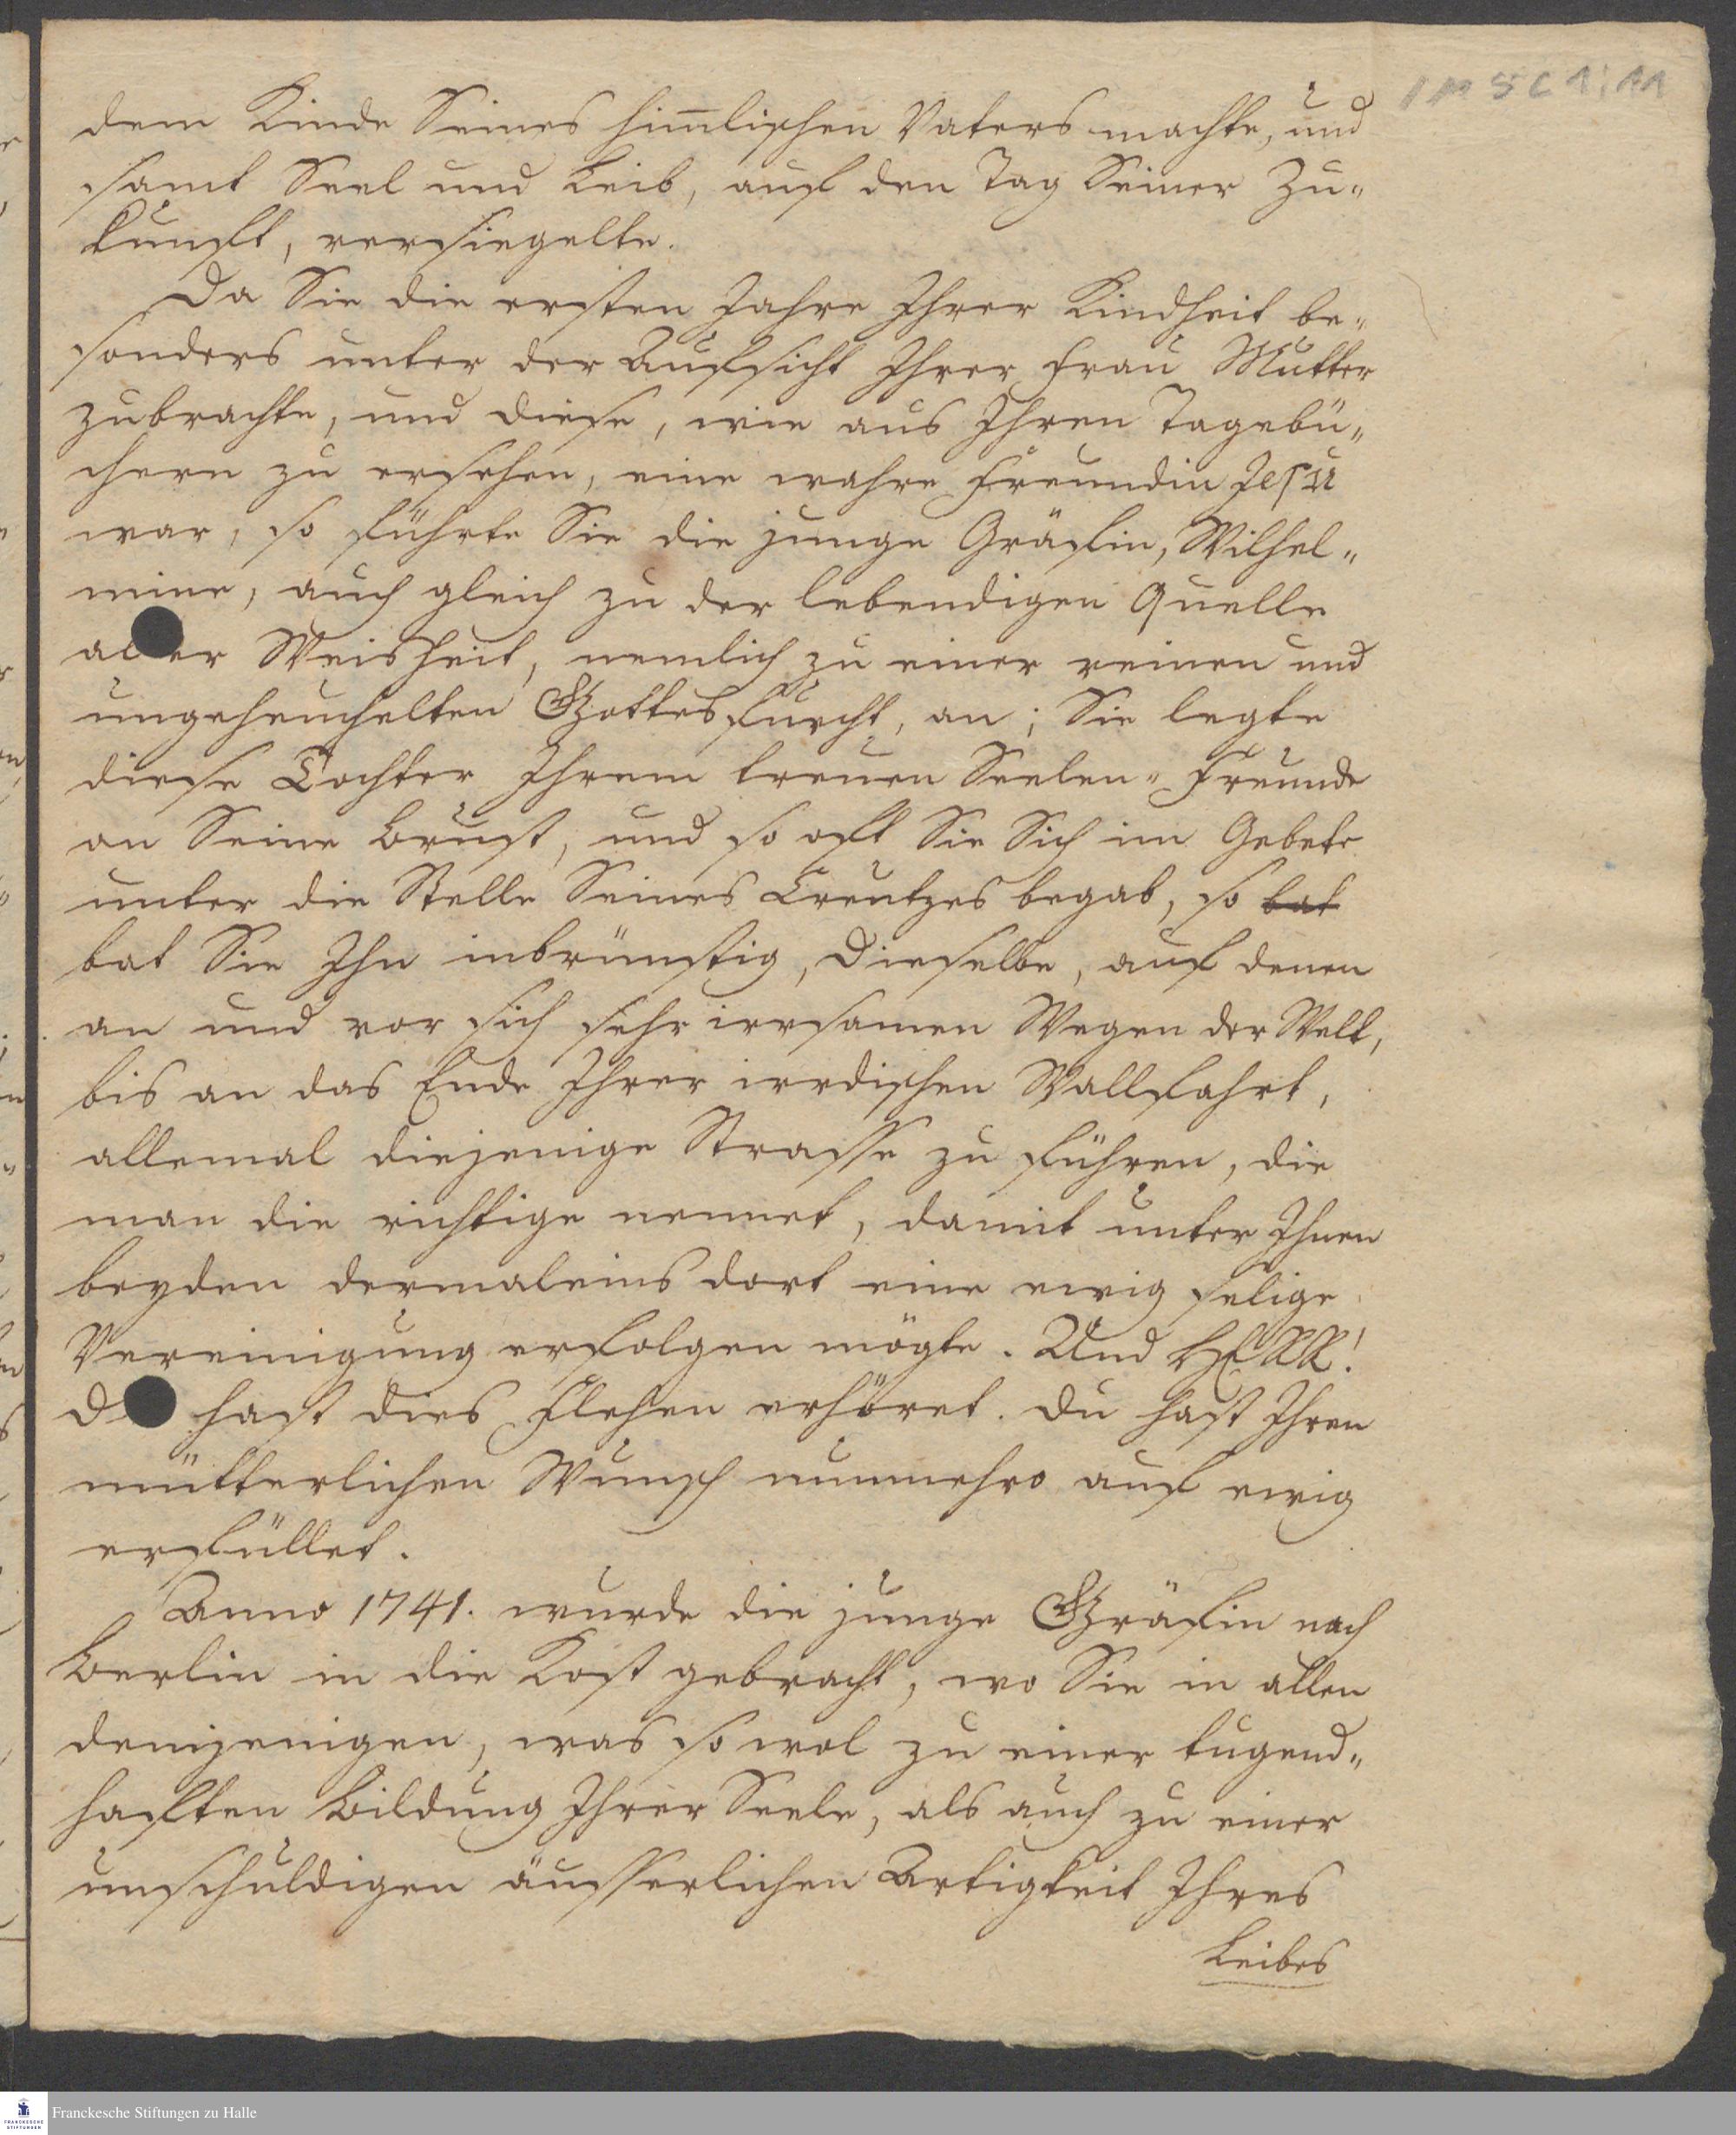 1 M 5 C 1:11
dem Kinde Seines him̅lischen Vaters machte, und
samt Seel und Leib, auf den Tag Seiner Zu-
kunft, versiegelte.
Da Sie die ersten Jahre Ihrer Kindheit be-
sonders unter der Aufsicht Ihrer Frau Mutter
zubrachte, und diese, wie aus Ihren Tagebü-
chern zu ersehen, eine wahre Freundin Jesu
war, so führte Sie die junge Gräfin, Wilhel-
mine, auch gleich zu der lebendigen Quelle
aller Weisheit, nemlich zu einer reinen und
ungeheuchelten Gottesfurcht, an; Sie legte
diese Tochter Ihrem treuen Seelen-Freunde
an Seine Brust, und so oft Sie Sich im Gebete
unter die Stelle Seines Creutzes begab, so bat
bat Sie Ihn inbrünstig, Dieselbe, auf denen
an und vor sich sehr irrsamen Wegen der Welt,
bis an das Ende Ihrer irrdischen Wallfahrt,
allemal diejenige Strasse zu führen, die
man die richtige nennet, damit unter Ihnen
beyden dermaleins dort eine ewig selige
Vereinigung erfolgen mögte. Und HERR!
Du hast dies Flehen erhöret. Du hast Ihren
mütterlichen Wunsch nunmehro auf ewig
erfüllet.
Anno 1741. wurde die junge Gräfin nach
Berlin in die Kost gebracht, wo Sie in allen
demjenigen, was so wol zu einer tugend-
haften Bildung Ihrer Seele, als auch zu einer
unschuldigen äusserlichen Artigkeit Ihres
Leibes
FRANCKESCHE STIFTUNGEN
Franckesche Stiftungen zu Halle